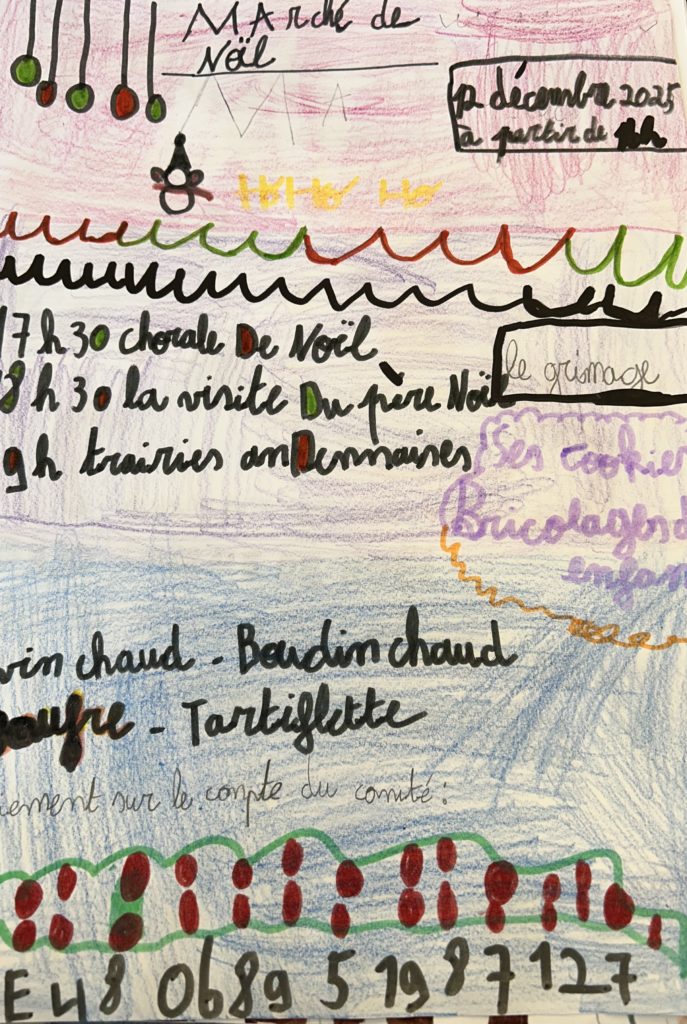 MARché de
Noël
12 décembre 2025
à partir de
HoHoHo Ho
17 h 30 chorale De Noël
8 h 30 la visite Du père Noël
le grimage
9h trairies anDennaises
Ses cookie
Bricolages d
enfan
vin chaud - Boudin chaud
oufre - Tartiflette
iement sur le compte du comité:
E 48 0689 5198 7127